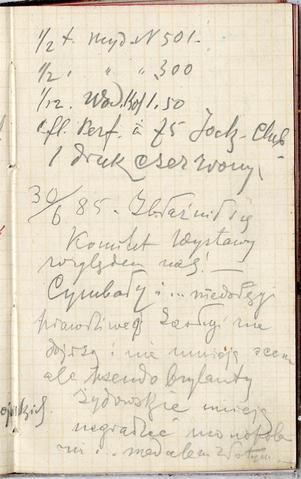 1/2 t. myd. N 501.
1/2 " " " 300
1/12. Wod. Kol 1.50
fl. Perf. à 75 Jock-Club
1 druk czerwony
30/6 85. Zbłaźnił się
Komitet Wystawy
względem nas! —
Cymbały i... niedołęgi
prawdziwej zasługi nie
dojrzą i nie umieją ocenić
ale Pseudo brylanty
żydowskie umieją
nagradzać
i... medalem złotym